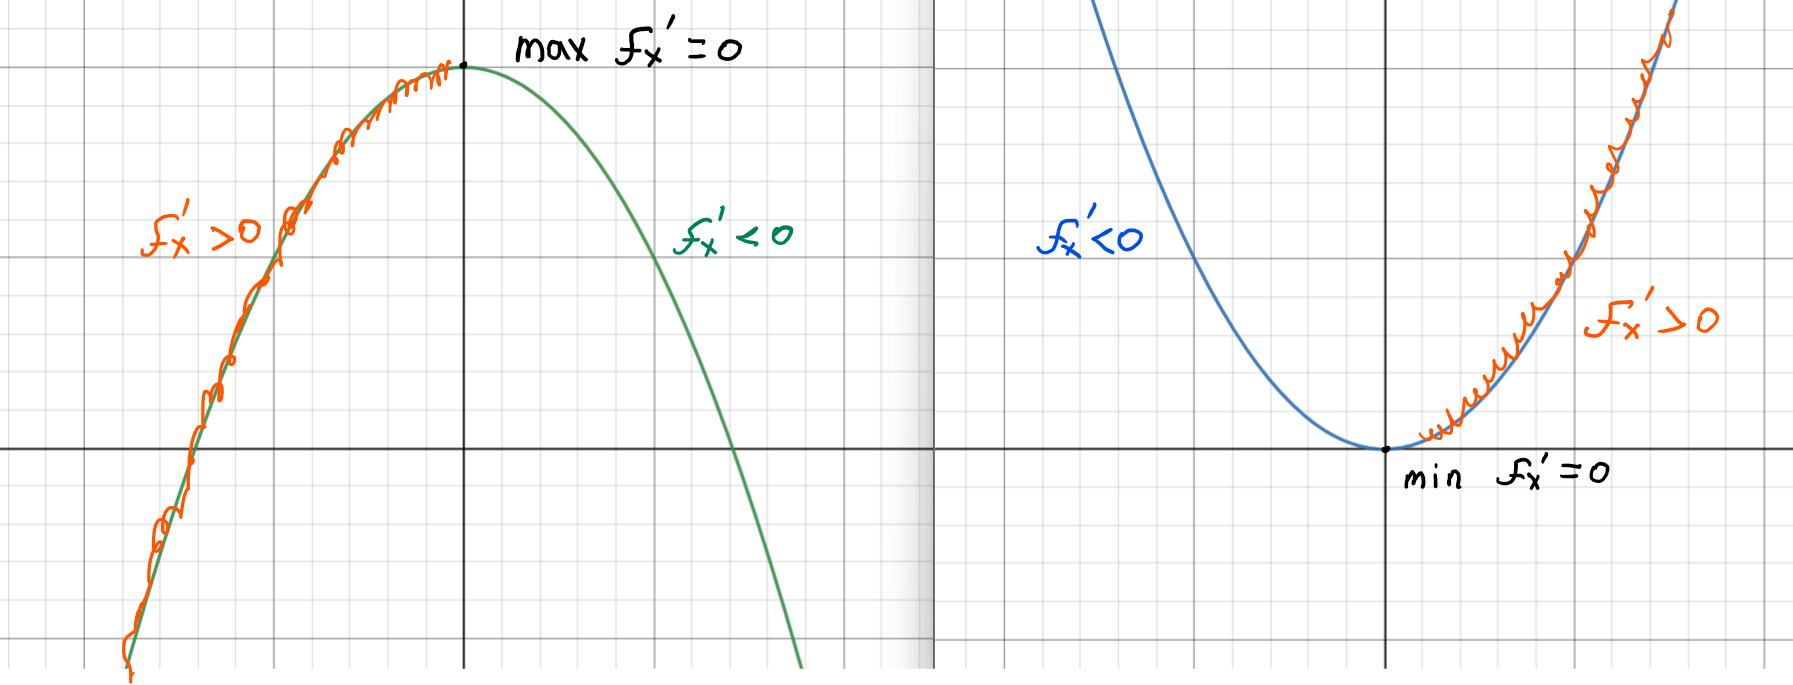 max fx' = 0
fx' > 0
fx' < 0
fx' < 0
fx' > 0
min fx' = 0